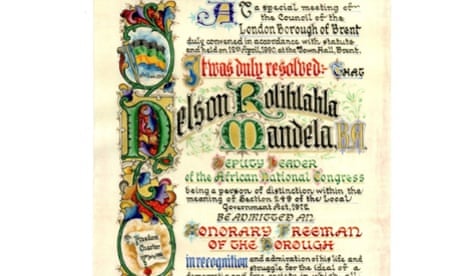 At a special meeting of
the Council of the
London Borough of Brent
duly convened in accordance with statute
and held on 12th April, 1990, at the Town Hall, Brent.
It was duly resolved:- THAT
Nelson Rolihlahla
Mandela, B.A.
DEPUTY LEADER
of the African National Congress
being a person of distinction within the
meaning of Section 249 of the Local
Government Act, 1972
BE ADMITTED AN
HONORARY FREEMAN
OF THE BOROUGH
Freedom
Charter
in recognition and admiration of his life and
struggle for the ideal of a
democratic and free society in which all